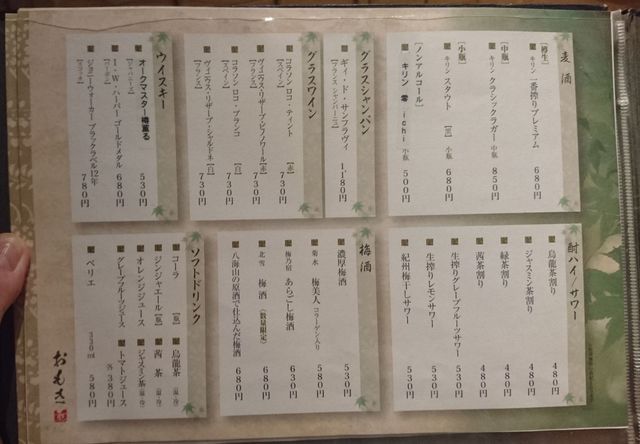 麦酒
【樽生】
キリン 一番搾りプレミアム 680円
【中瓶】
キリン クラシックラガー 中瓶 850円
【小瓶】
キリン スタウト 【黒】 小瓶 680円
【ノンアルコール】
キリン 零 ichi 小瓶 500円
グラスシャンパン
ギィ・ド・サンフラヴィ 1180円
【フランス シャンパーニュ】
グラスワイン
コラソン ロコ・ティント 【赤】 730円
【スペイン】
ヴィニウス・リザーブ・ピノノワール 【赤】 730円
【フランス】
コラソン ロコ・ブランコ 【白】 730円
【スペイン】
ヴィニウス・リザーブ・シャルドネ 【白】 730円
【フランス】
ウイスキー
オークマスター樽薫る 530円
【ジャパニーズ】
I・W・ハーパー ゴールドメダル 680円
【バーボン】
ジョニーウォーカー ブラックラベル12年 780円
【スコッチ】
酎ハイ/サワー
烏龍茶割り 480円
ジャスミン茶割り 480円
緑茶割り 480円
茜茶割り 480円
生搾りグレープフルーツサワー 530円
生搾りレモンサワー 530円
紀州梅干しサワー 530円
梅酒
濃厚梅酒 530円
菊水 梅美人 コラーゲン入り 580円
梅乃宿 あらごし梅酒 630円
北雪 梅酒 (数量限定) 680円
八海山の原酒で仕込んだ梅酒 680円
ソフトドリンク
コーラ 【瓶】
烏龍茶 【温・冷】
ジンジャエール 【瓶】
茜茶 【温・冷】
オレンジジュース
ジャスミン茶 【温・冷】
グレープフルーツジュース
トマトジュース
各380円
ペリエ 330ml 580円
おもき